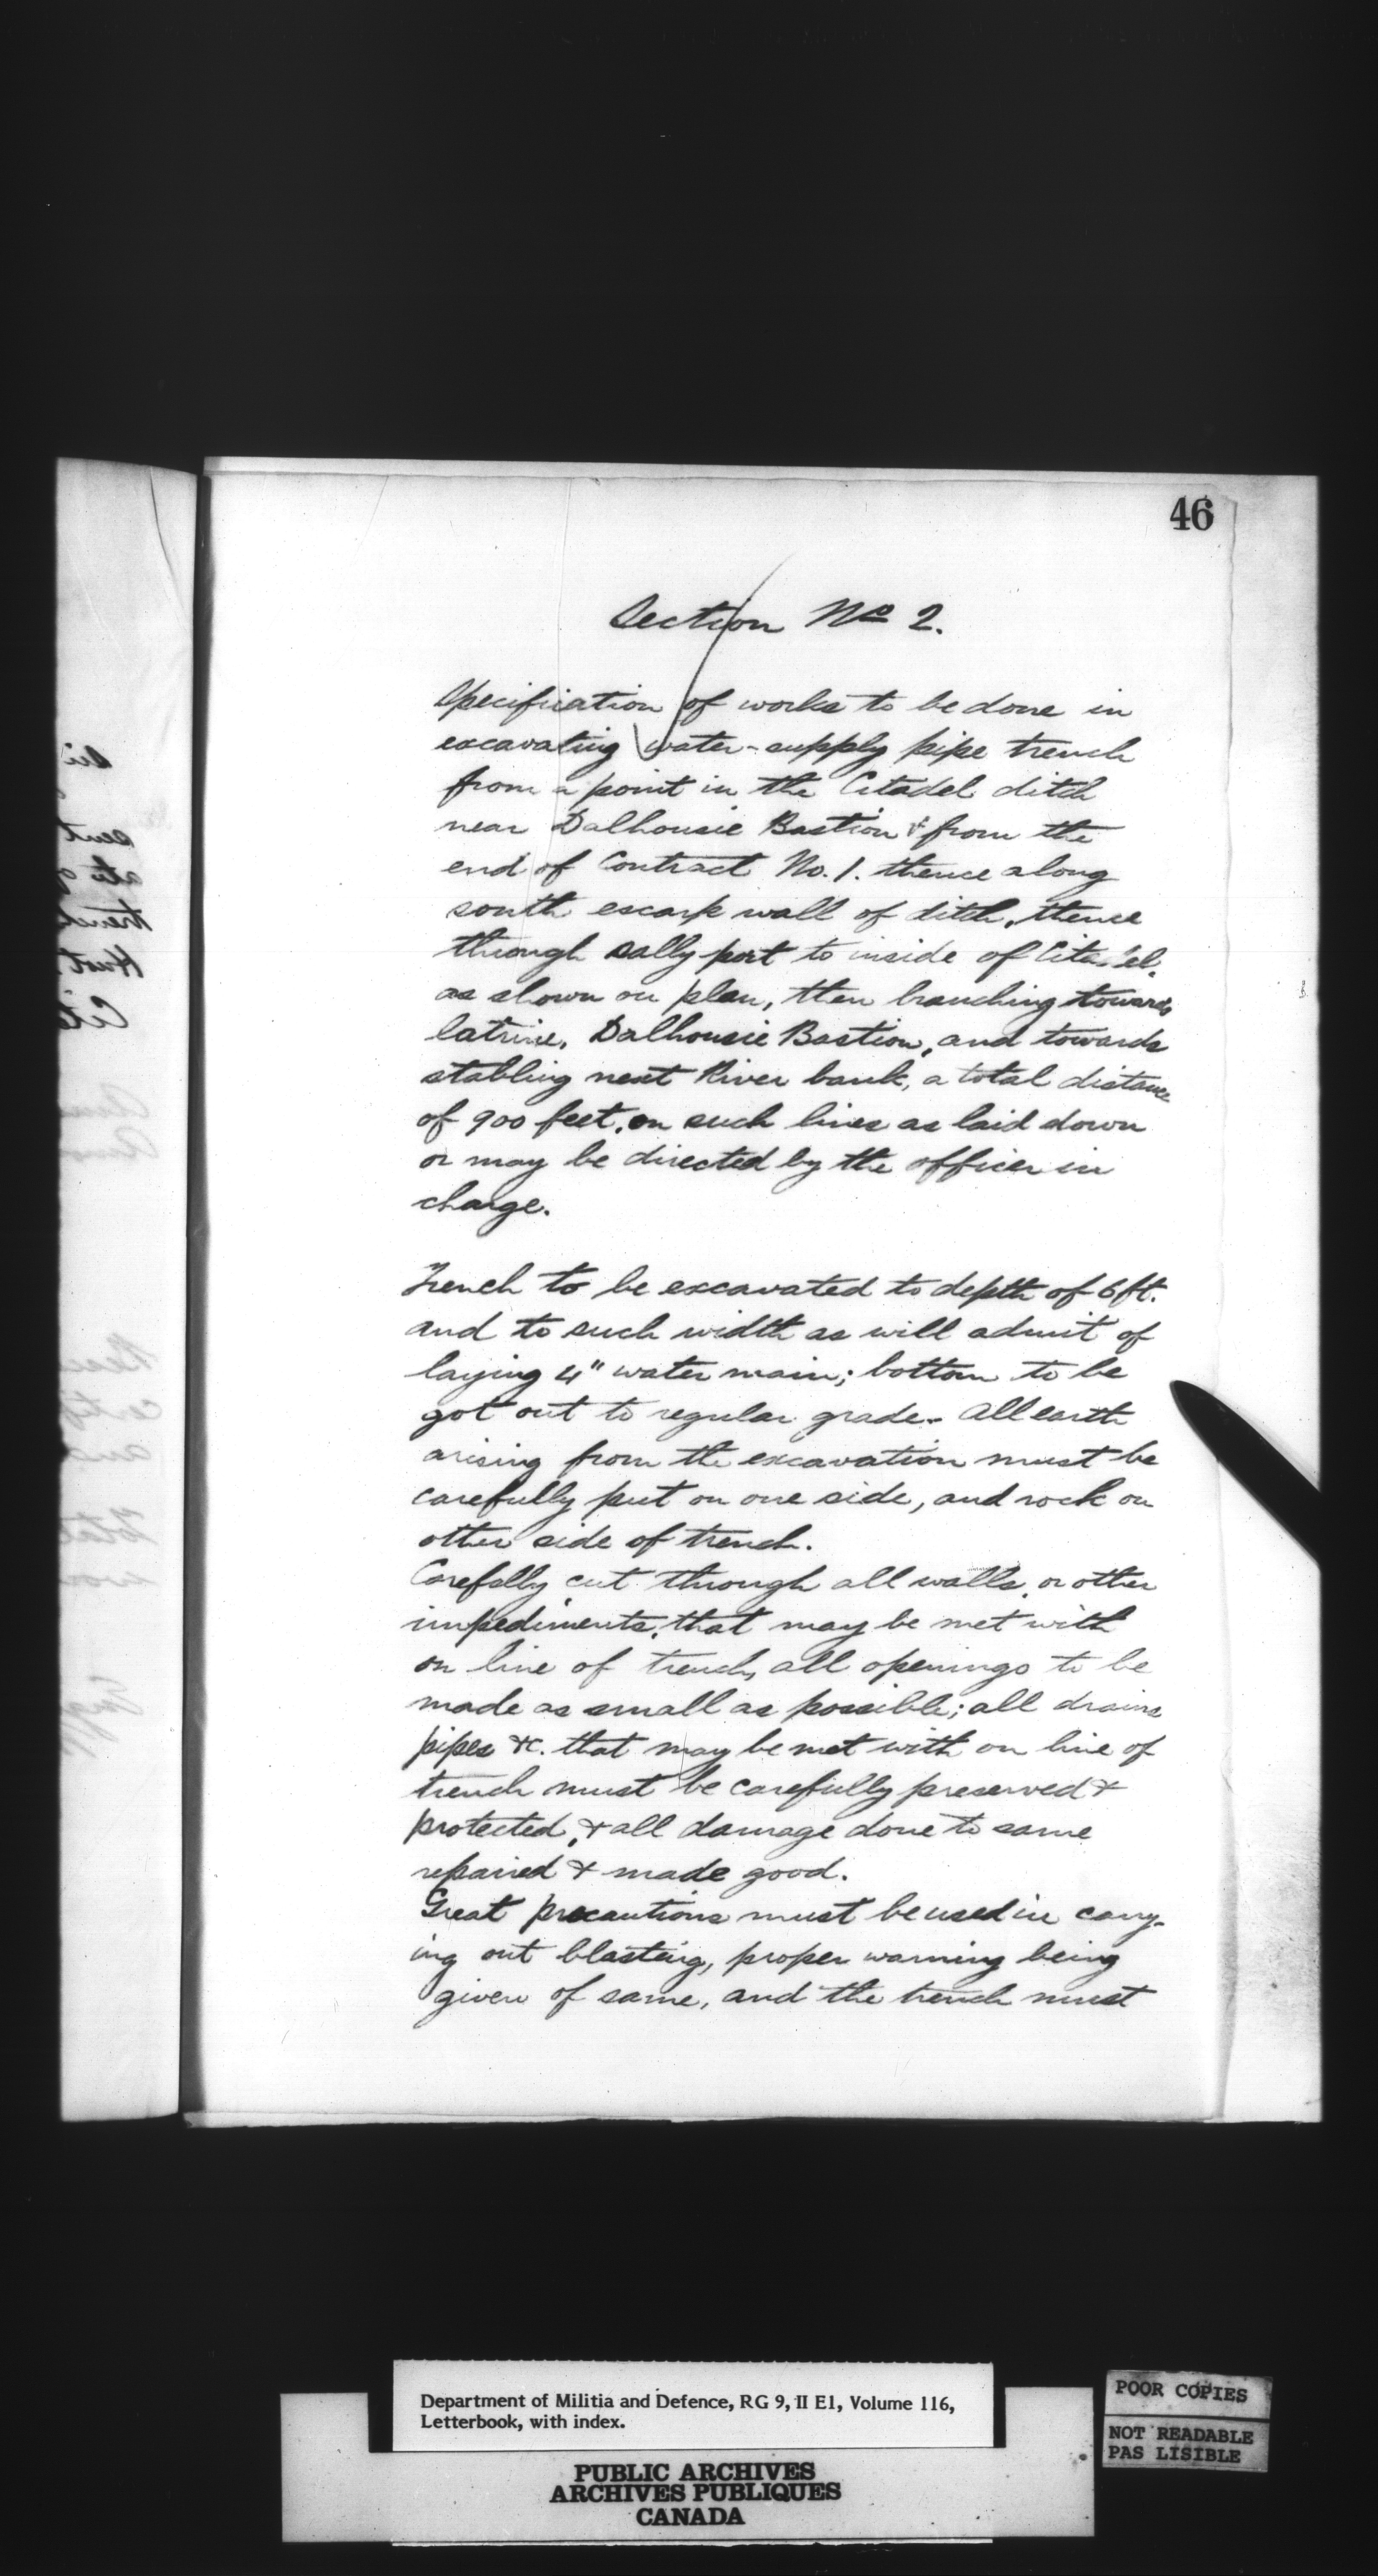 46
Section No 2.
Specification of works to be done in
excavating water-supply pipe trench
from a point in the Citadel ditch
near Dalhousie Bastion & from the
end of Contract No. 1. thence along
south escarp wall of ditch, thence
through sally port to inside of Citadel.
as shown on plan, then branching towards
latrine, Dalhousie Bastion, and towards
stabling next River bank, a total distance
of 900 feet, on such lines as laid down
or may be directed by the officer in
charge.
Trench to be excavated to depth of 6 ft.
and to such width as will admit of
laying 4" water main; bottom to be
got out to regular grade. All earth
arising from the excavation must be
carefully put on one side, and rock on
other side of trench.
Carefully cut through all walls, or other
impediments, that may be met with
on line of trench, all openings to be
made as small as possible; all drains
pipes &c. that may be met with on line of
trench must be carefully preserved &
protected, & all damage done to same
repaired & made good.
Great precautions must be used in carry-
ing out blasting, proper warning being
given of same, and the trench must
Department of Militia and Defence, RG 9, II E1, Volume 116,
Letterbook, with index.
PUBLIC ARCHIVES
ARCHIVES PUBLIQUES
CANADA
POOR COPIES
NOT READABLE
PAS LISIBLE